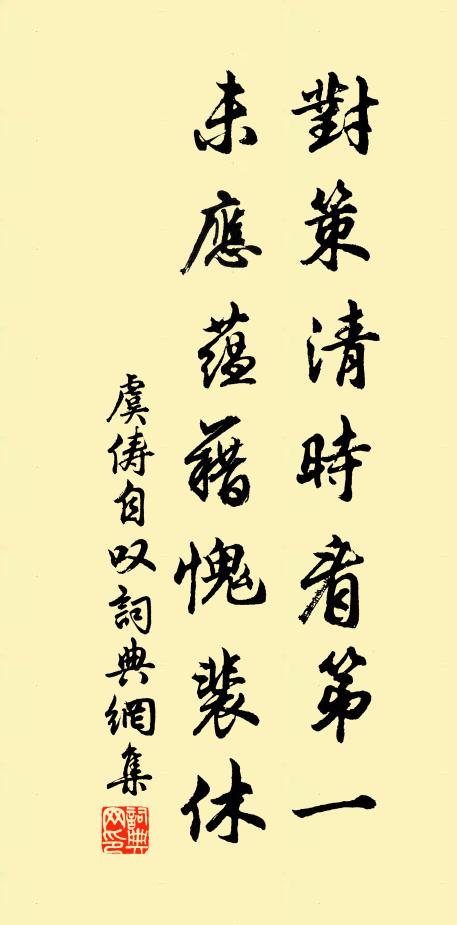 對策清時看第一
未應蘊藉愧裴休
虞儔自叹詞典網集
詞典网印